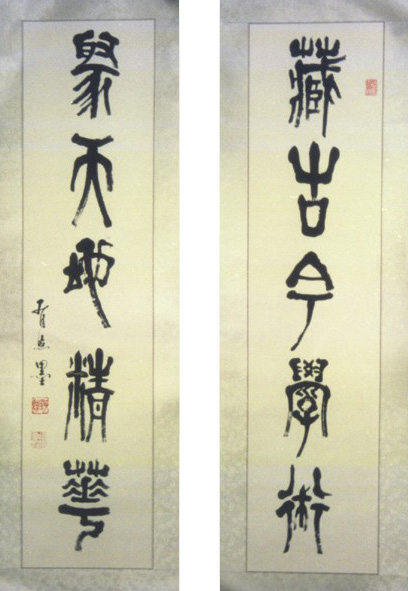 藏古今學術
聚天地精華
墨